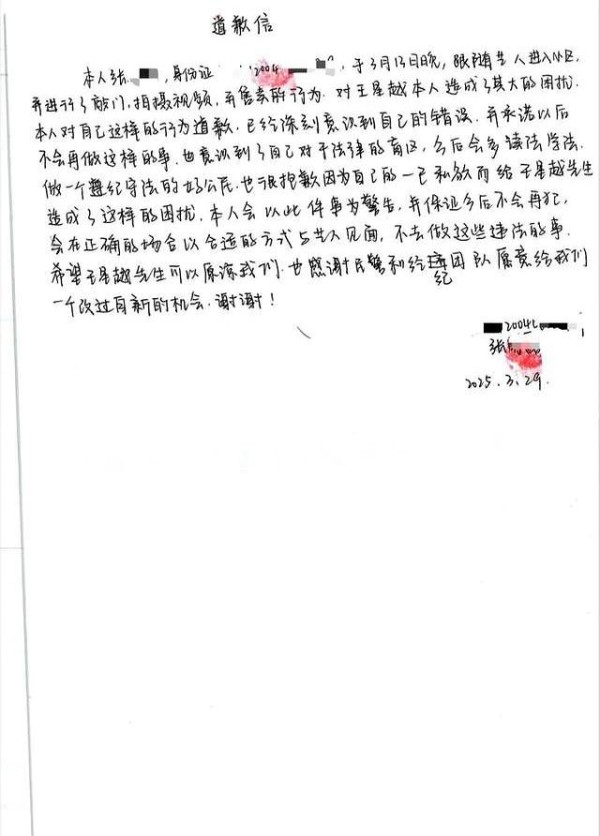 道歉信
本人张,身份证2004,于3月13日晚,跟随艺人进入小区,
并进行了敲门,拍摄视频,并售卖的行为.对王星越本人造成了莫大的困扰.
本人对自己这样的行为道歉.已经深刻意识到自己的错误.并承诺以后
不会再做这样的事.也意识到了自己对于法律的盲区,今后会多读法学法.
做一个遵纪守法的好公民.也很抱歉因为自己的一己私欲而给王星越先生
造成了这样的困扰.本人会以此件事为警告,并保证今后不会再犯,
会在正确的场合以合适的方式与艺人见面,不去做这些违法的事.
希望王星越先生可以原谅我们.也感谢民警和经纪团队愿意给我们
一个改过自新的机会.谢谢!
2004
张
2025.3.29.